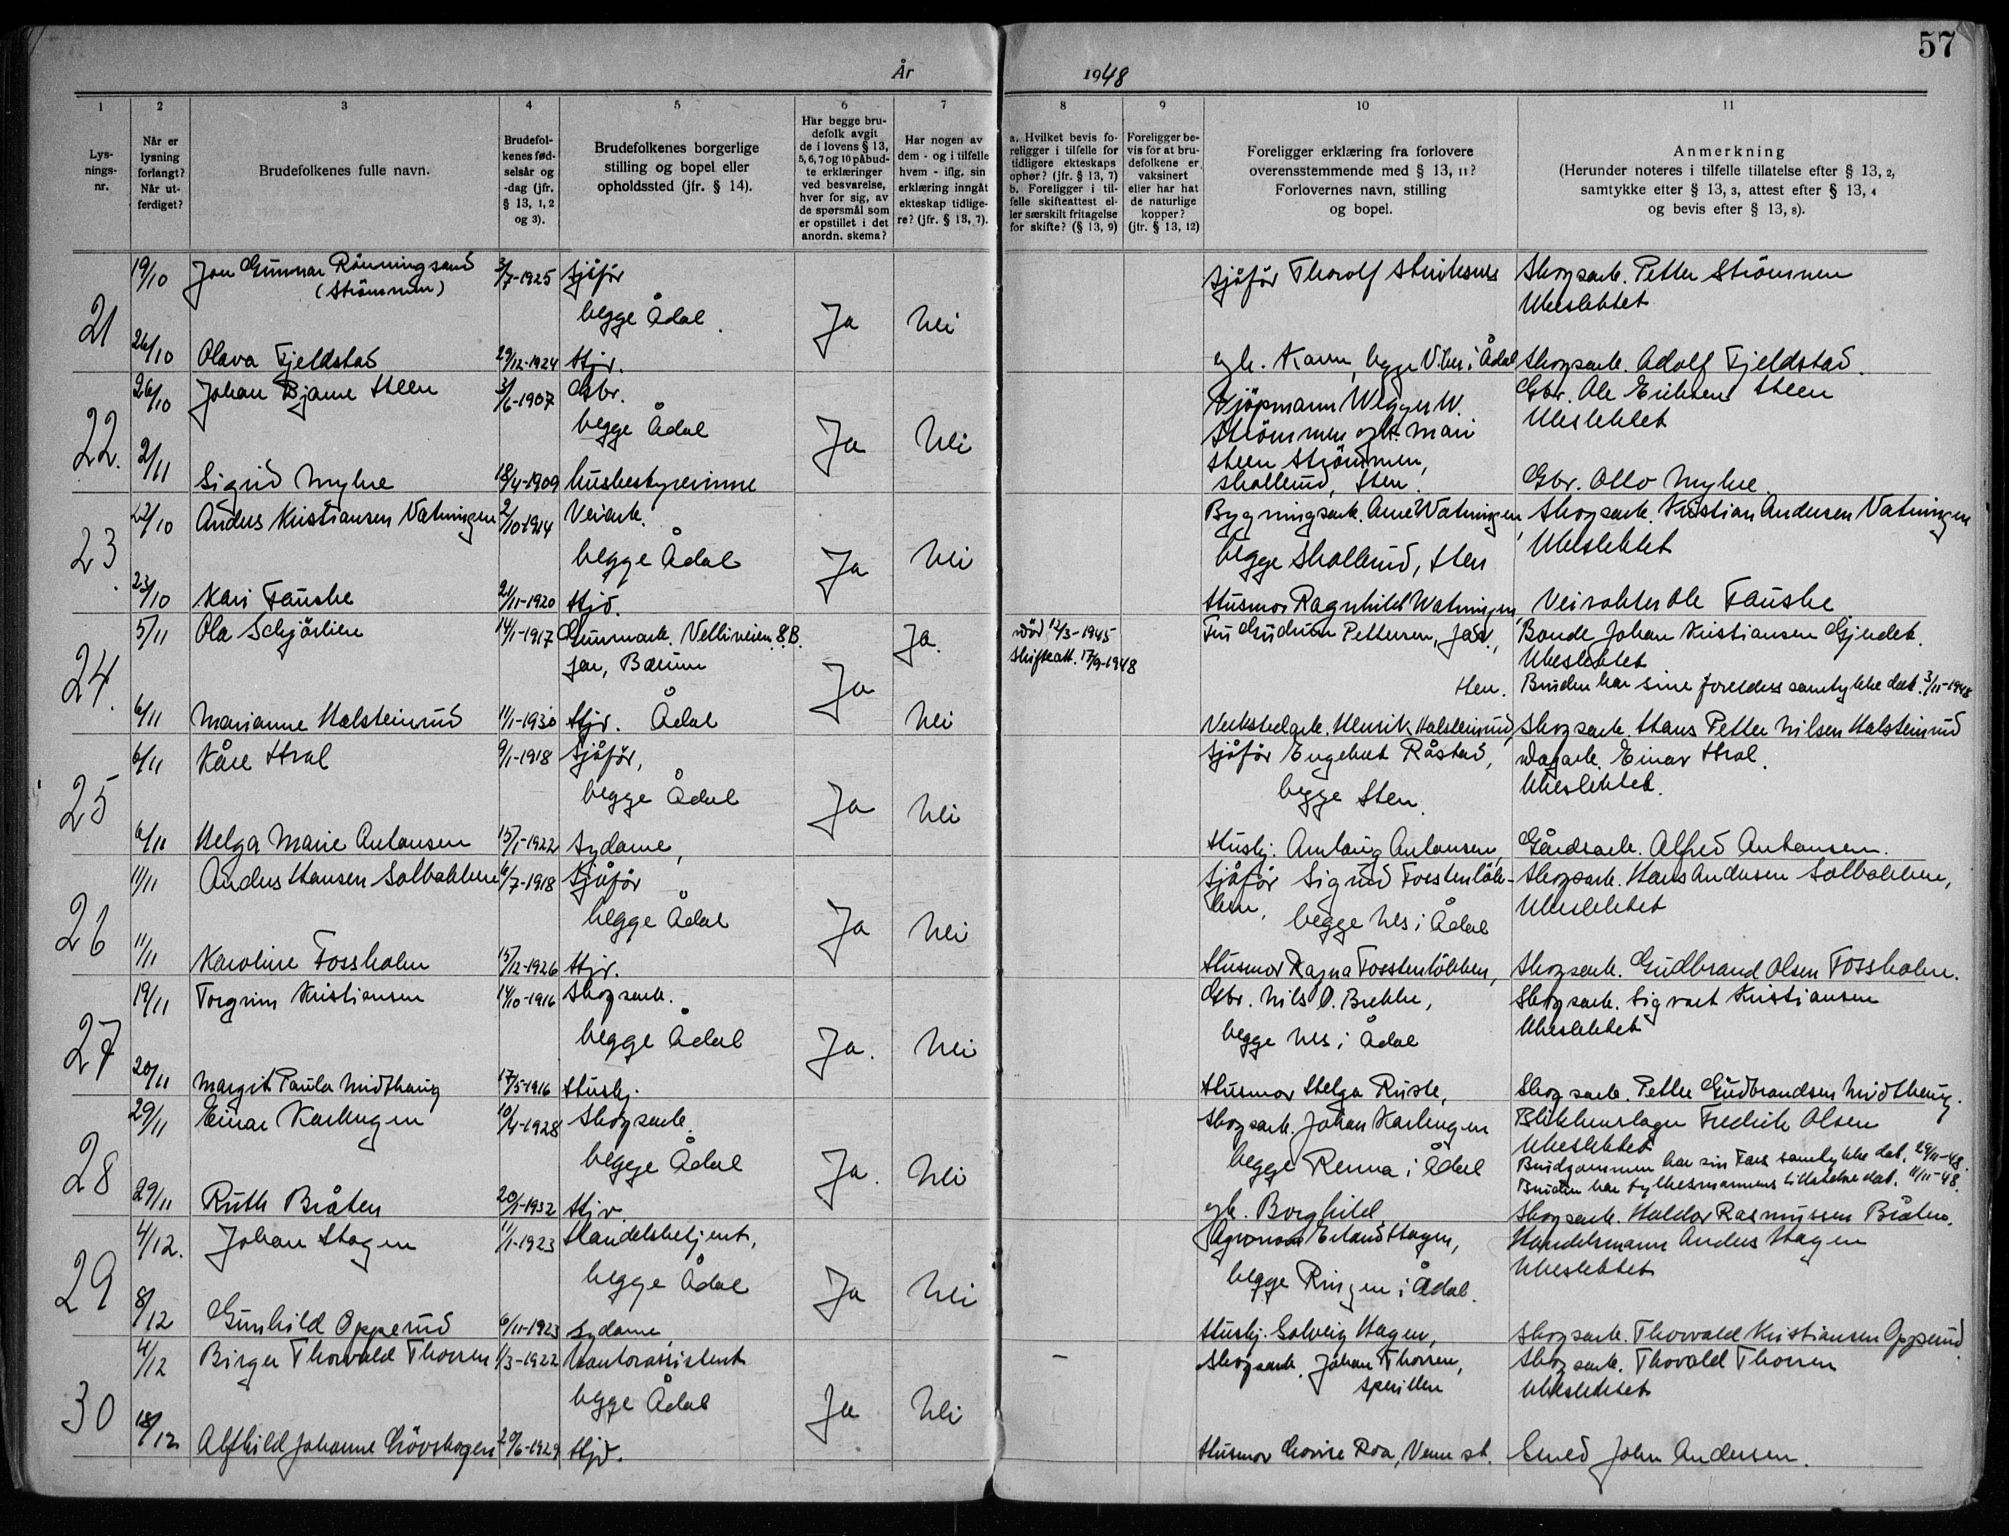 57
År 1948
1
Lys-
nings-
nr.
2
Når er
lysning
forlangt?
Når ut-
ferdiget?
3
Brudefolkenes fulle navn.
4
Brudefol-
kenes fød-
selsår og
-dag (jfr.
§ 13, 1, 2
og 3).
5
Brudefolkenes borgerlige
stilling og bopel eller
opholdssted (jfr. § 14).
6
Har begge bru-
defolk avgit
de i lovens § 13,
5, 6, 7 og 10 påbud-
te erklæringer
ved besvarelse,
hver for sig, av
de spørsmål som
er opstillet i det
anordn. skema?
7
Har nogen av
dem - og i tilfelle
hvem - iflg. sin
erklæring inngåt
ekteskap tidlige-
re? (jfr. § 13, 7).
8
a. Hvilket bevis fo-
religger i tilfelle for
tidligere ekteskaps
ophør? (jfr. § 13, 7)
b. Foreligger i til-
felle skifteattest el-
ler særskilt fritagelse
for skifte? (§ 13, 9)
9
Foreligger be-
vis for at bru-
defolkene er
vaksinert
eller har hat
de naturlige
kopper?
(jfr. § 13, 12)
10
Foreligger erklæring fra forlovere
overensstemmende med § 13, 11?
Forlovernes navn, stilling
og bopel.
11
Anmerkning
(Herunder noteres i tilfelle tillatelse efter § 13, 2,
samtykke efter § 13, 3, attest efter § 13, 4
og bevis efter § 13, 8).
21
19/10 Jon Gunnar Rönningsand 3/7-1925 Sjåför Sjåför Thorolf Skogsarb. Petter Strömmen
(Strömmen) Ubeslektet
begge Ådal. Ja Nei
26/10 Olava Fjeldstad 29/12-1924 Hjv. og h. Karen, begge Nes i Ådal Skogsarb. Adolf Fjeldstad.
22.
26/10 Johan Bjarne Steen 3/6-1907 Gbr. Kjöpmann Wegger W. Gbr. Ole Eriksen Steen
begge Ådal Ja Nei Strömmen og h. Mari Ubeslektet
Steen Strömmen,
2/11 Sigrid Myhre 18/4-1909 husbestyrerinne Skollerud, Hen. Gbr. Otto Myhre.
23
22/10 Anders Kristiansen Vatningen 2/10-1914 Veiarb. Bygningsarb. Arne Watningen, Skogsarb. Kristian Andersen Vatningen
begge Ådal Ja Nei begge Skollerud, Hen Ubeslektet
23/10 Kari Fauske 21/11-1920 Hjv. Husmor Ragnhild Watningen, Veivokter Ole Fauske
24.
5/11 Ola Schjörlien 14/1-1917 Gummiarb. Velliveien 8 B. Ja. död 12/3-1945 Fru Gudrun Pettersen, Bonde Johan Kristiansen Gjerdet.
Jar, Bærum Skifteatt. 17/9-1948 Ubeslektet
Ja Hen. Bruden har sine foreldres samtykke dat. 3/11-1948
6/11 Marianne Halsteinrud 11/1-1930 Hjv. Ådal Nei Verkstedarb. Henrik Halsteinrud, Skogsarb. Hans Petter Nilsen Halsteinrud
25
6/11 Kåre Hval 9/1-1918 Sjåför, Sjåför Engebret Råstad, Dagarb. Einar Hval.
begge Ådal Ja Nei begge Hen. Ubeslektet.
6/11 Helga Marie Antonsen 15/1-1922 Sydame, Husbj. Antonsen Gårdsarb. Alfred Antonsen.
26
11/11 Anders Hansen Solbakken 6/7-1918 Sjåför Sjåför Sigurd Skogsarb. Hans Andersen Solbakken,
begge Ådal Ja Nei begge Nes i Ådal Ubeslektet
11/11 Karoline Fossholm 15/12-1926 Hjv. Husmor Ragna Skogsarb. Gudbrand Olsen Fossholm.
27
19/11 Torgrim Kristiansen 14/10-1916 Skogsarb. Gbr. Nils O. Brekke, Skogsarb. Sigvart Kristiansen
begge Ådal Ja. Nei begge Nes i Ådal Ubeslektet
20/11 Margit Paula Midthaug 17/5-1916 Husbj. Husmor Helga Ruste, Skogsarb. Petter Gudbrandsen Midthaug.
28
29/11 Einar Karlengen 10/4-1928 Skogsarb. Skogsarb. Johan Karlengen Blikkenslager Fredrik Olsen
Ubeslektet
begge Ådal Ja. Nei begge Renna i Ådal Brudgommen har sin Fars samtykke dat. 29/11-48.
Bruden har fylkesmannens tillatelse dat. 11/11-48.
29/11 Ruth Bråten 20/1-1932 Hjv. og h. Borghild Skogsarb. Haldor Rasmussen Bråten.
29
4/12. Johan Hagen 11/1-1923 Handelsbetjent, Agronom Erland Hagen, Handelsmann Anders Hagen
begge Ådal Ja Nei begge Ringen i Ådal. Ubeslektet
8/12 Gunhild Opperud 6/11-1923 Sydame, Husbj. Solveig Hagen, Skogsarb. Thorvald Kristiansen Opperud
30
4/12 Birger Thorvald Thoresen 1/3-1922 Kontorassistent – Skogsarb. Johan Thoresen, Skogsarb. Thorvald Thoresen
begge Ådal Ja Nei Sperillen Ubeslektet
18/12 Alfhild Johanne Lövskogen 20/6-1929 Hjv. Husmor Lovise Roa, Veme st. Smed John Andersen.